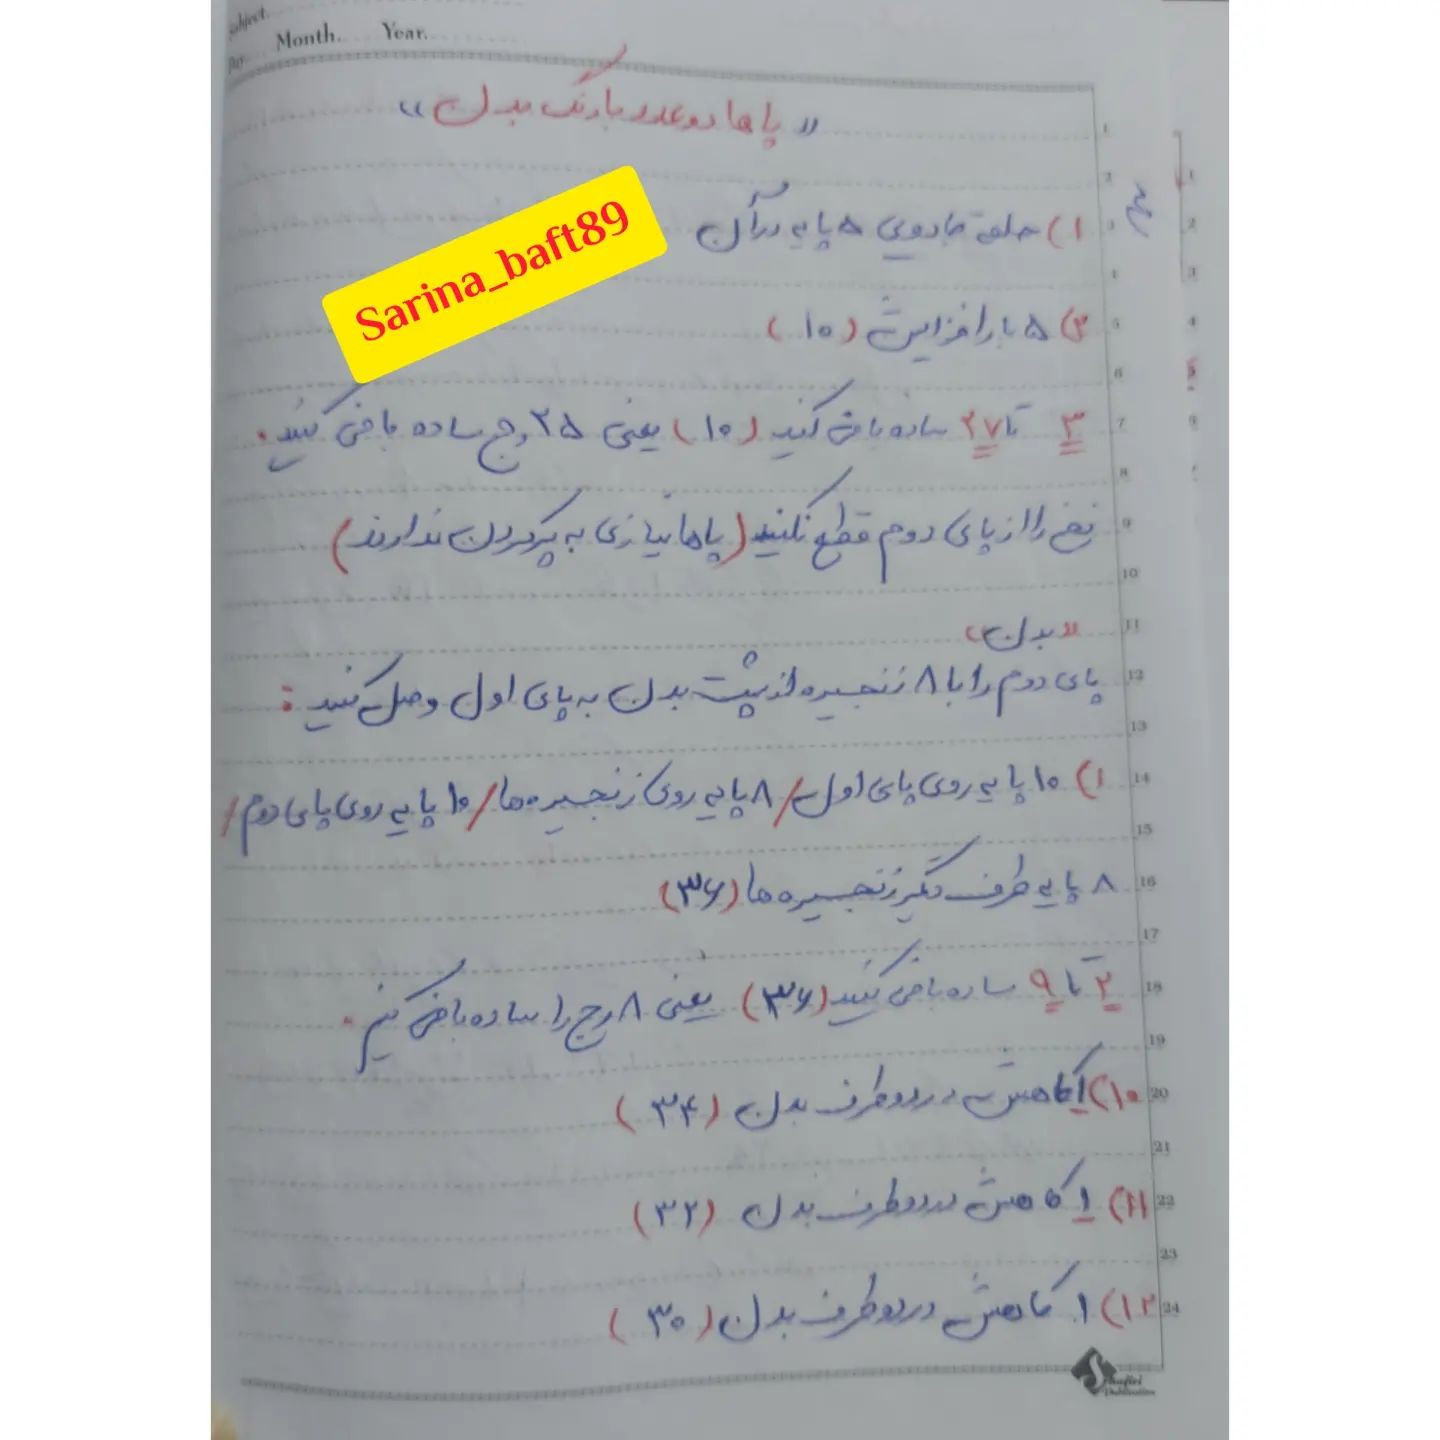 Subject.
Day Month. Year.
« پا ها دو عدد با رنگ بدن »
۱) حلقه جادویی ۵ پایه در آن
۲) ۵ بار افزایش (۱۰)
۳ تا ۲۷ ساده بافی کنید (۱۰) یعنی ۲۵ رج ساده بافی کنید.
نخ را از پای دوم قطع نکنید (پاها نیازی به پر کردن ندارند)
«بدن»
پای دوم را با ۸ زنجیره از پشت بدن به پای اول وصل کنید:
۱) ۱۰ پایه روی پای اول / ۸ پایه روی زنجیره ها / ۱۰ پایه روی پای دوم /
۸ پایه طرف دیگر زنجیره ها (۳۶)
۲ تا ۹ ساده بافی کنید (۳۶) یعنی ۸ رج را ساده بافی کنیم.
۱۰) ۱ کاهش در دو طرف بدن (۳۴)
۱۱) ۱ کاهش در دو طرف بدن (۳۲)
۱۲) ۱ کاهش در دو طرف بدن (۳۰)
Sarina_baft89